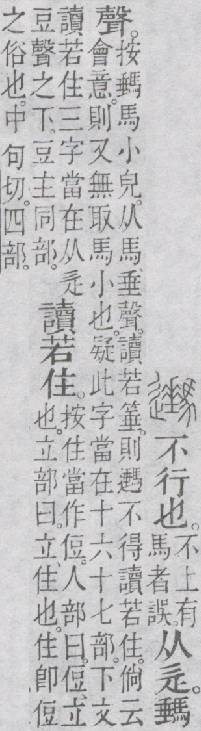 不行也。不上有
馬者誤。
从辵。䮔
聲。按䮔馬小皃。从馬、垂聲。讀若箠。則不得讀若住。倘云
會意。則又無取馬小也。疑此字當在十六十七部。下文
讀若住三字當在从辵
豆聲之下。豆主同部。
讀若住。按住當作侸。人部曰。侸、立
也。立部曰。立、住也。住卽侸
之俗也。中句切。四部。